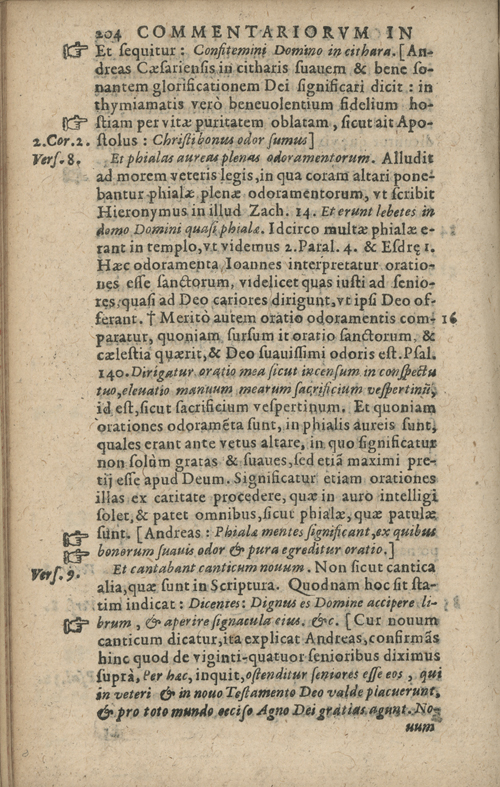 204 COMMENTARIORVM IN
Et sequitur : Confitemini Domino in cithara. [An-
dreas Cæsariensis in citharis suauem & bene so-
nantem glorificationem Dei significari dicit : in
thymiamatis verò beneuolentium fidelium ho-
stiam per vitæ puritatem oblatam, sicut ait Apo-
2.Cor.2. stolus : Christi bonus odor sumus]
Vers. 8. Et phialas aureas plenas odoramentorum. Alludit
ad morem veteris legis, in qua coram altari pone-
bantur phialæ plenæ odoramentorum, vt scribit
Hieronymus in illud Zach. 14. Et erunt lebetes in
domo Domini quasi phialæ. Idcirco multæ phialæ e-
rant in templo, vt videmus 2. Paral. 4. & Esdrę 1.
Hæc odoramenta Ioannes interpretatur oratio-
nes esse sanctorum, videlicet quas iusti ad senio-
res quasi ad Deo cariores dirigunt, vt ipsi Deo of-
ferant. † Meritò autem oratio odoramentis com- 16
paratur, quoniam sursum it oratio sanctorum, &
cælestia quærit, & Deo suauissimi odoris est. Psal.
140. Dirigatur oratio mea sicut incensum in conspectu
tuo, eleuatio manuum mearum sacrificium vespertinū,
id est, sicut sacrificium vespertinum. Et quoniam
orationes odoramēta sunt, in phialis aureis sunt,
quales erant ante vetus altare, in quo significatur
non solùm gratas & suaues, sed etiā maximi pre-
tij esse apud Deum. Significatur etiam orationes
illas ex caritate procedere, quæ in auro intelligi
solet, & patet omnibus, sicut phialæ, quæ patulæ
sunt. [Andreas : Phiala mentes significant, ex quibus
bonorum suauis odor & pura egreditur oratio.]
Vers. 9. Et cantabant canticum nouum. Non sicut cantica
alia, quæ sunt in Scriptura. Quodnam hoc sit sta-
tim indicat : Dicentes : Dignus es Domine accipere li-
brum, & aperire signacula eius. &c. [Cur nouum
canticum dicatur, ita explicat Andreas, confirmās
hinc quod de viginti-quatuor senioribus diximus
suprà, Per hæc, inquit, ostenditur seniores esse eos, qui
in veteri & in nouo Testamento Deo valde placuerunt,
& pro toto mundo occiso Agno Dei gratias agunt. No-
uum